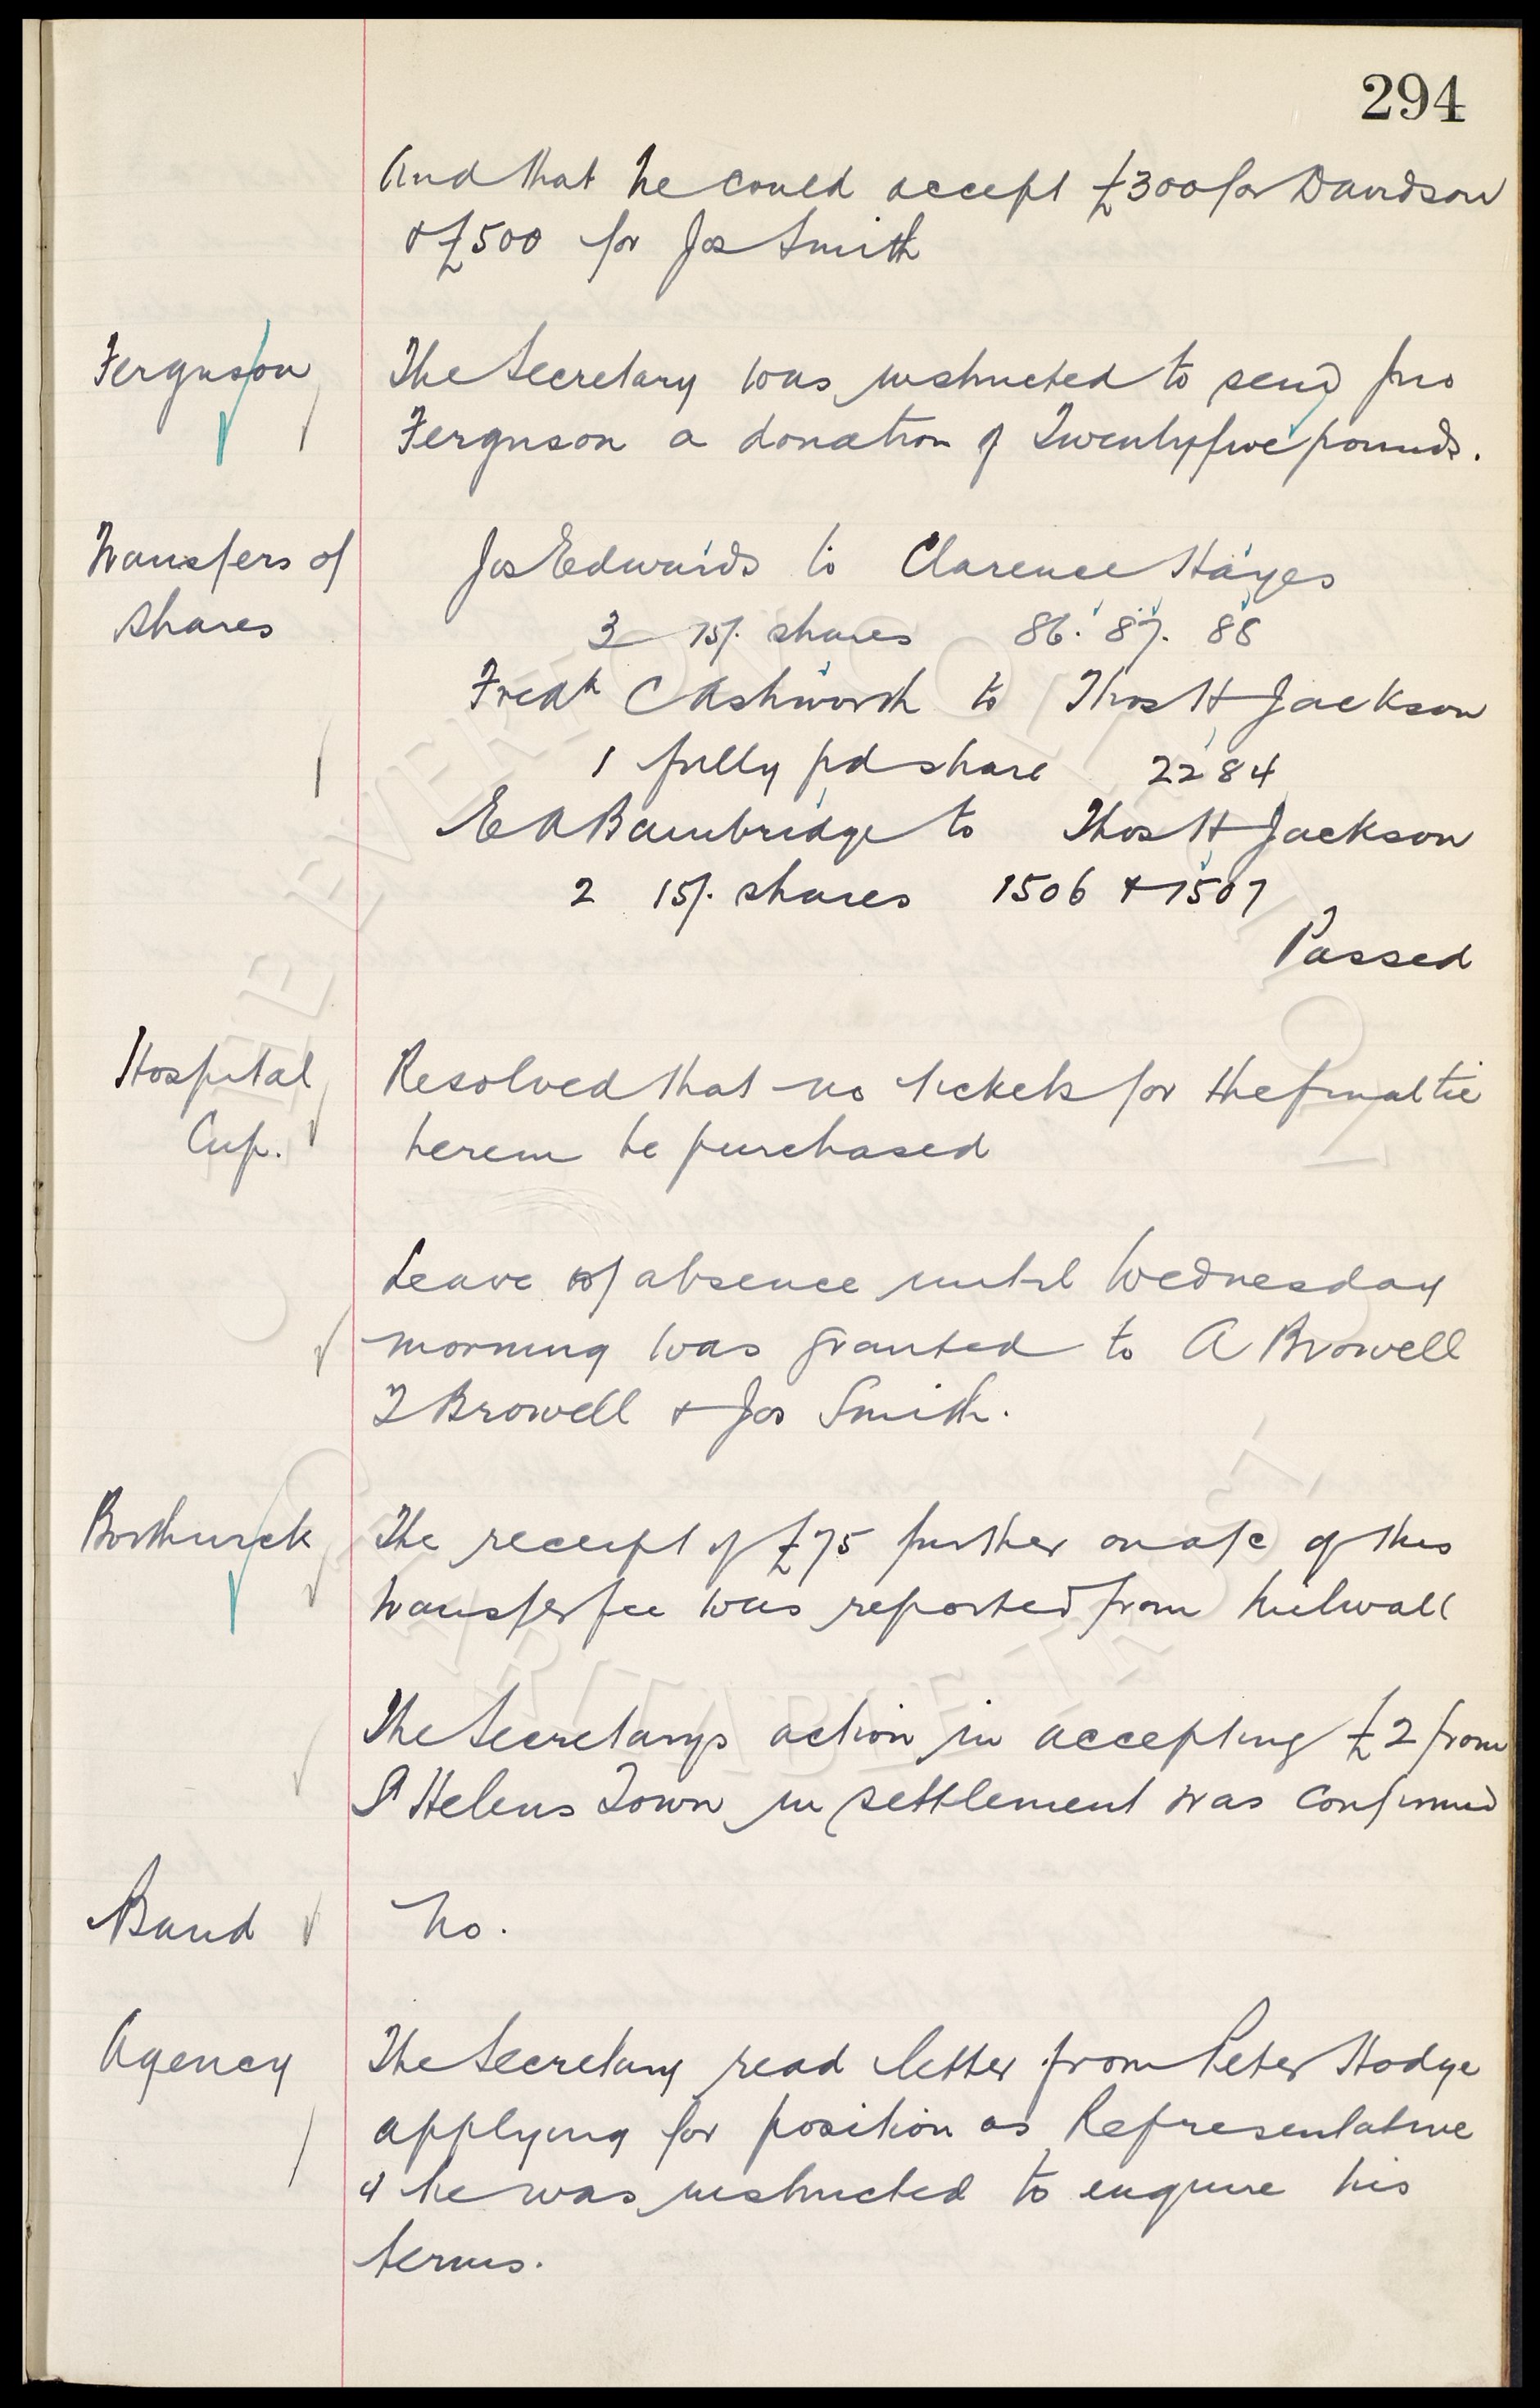 294
And that he could accept £300 for Davidson
& £500 for Jos Smith
Ferguson
The Secretary was instructed to send Jno
Ferguson a donation of Twentyfive pounds.
Transfers of
shares
Jos Edwards to Clarence Hayes
3 15/. shares 86. 87. 88
Fredk C Ashworth to Thos H Jackson
1 fully pd share 2284
E A Bainbridge to Thos H Jackson
2 15/. shares 1506 & 1507
Passed
Hospital
Cup.
Resolved that no tickets for the final tie
herein be purchased
Leave of absence until Wednesday
morning was granted to A Browell
T Browell & Jos Smith.
Borthwick
The receipt of £75 further on a/c of this
transfer fee was reported from Millwall
The Secretarys action in accepting £2 from
St Helens Town in settlement was confirmed
Band
No.
Agency
The Secretary read letter from Peter Hodge
applying for position as Representative
& he was instructed to enquire his
terms.